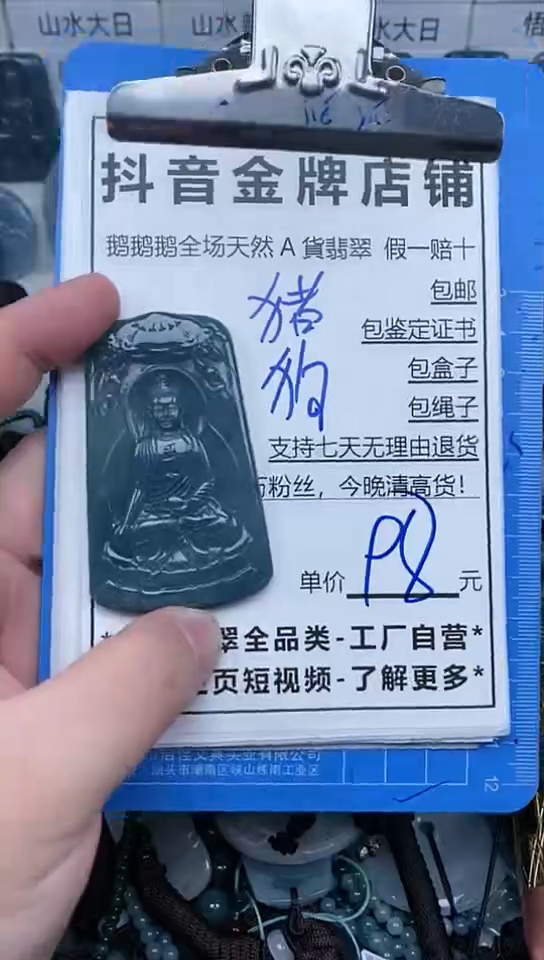 山水大日
山水
水大日
悟
抖音金牌店铺
鹅鹅鹅全场天然 A 貨翡翠 假一赔十
猪
狗
包邮
包鉴定证书
包盒子
包绳子
支持七天无理由退货
万粉丝，今晚清高货！
单价 98 元
翠全品类-工厂自营*
页短视频-了解更多*
12